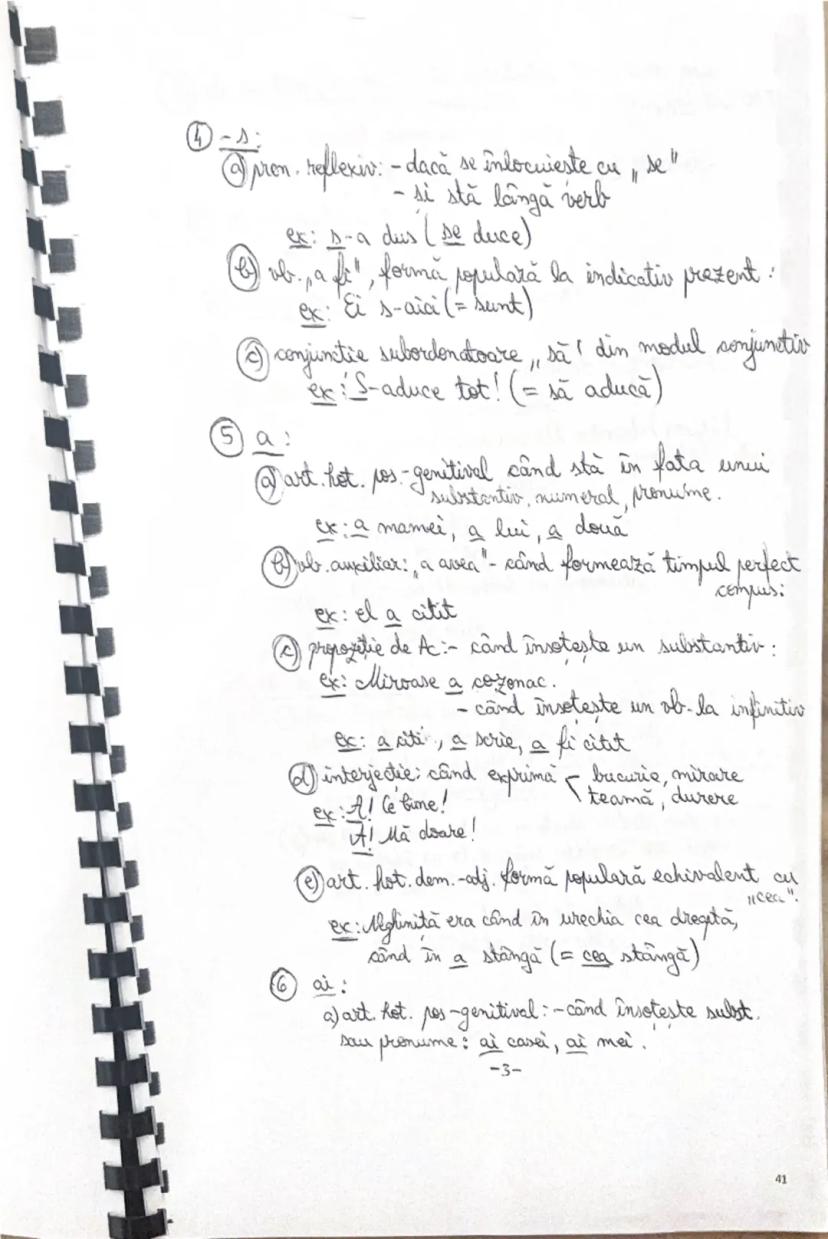 ④ -s:
ⓐ pron. reflexiv: - dacă se înlocuieste cu „se"
- si stă lângă verb
ex: s-a dus (se duce)
ⓑ vb. „a fi", formă populară la indicativ prezent:
ex: Ei s-aici (= sunt)
ⓒ conjunctie subordonatoare „să" din modul conjunctiv
ex: S-aduce tot! (= să aducă)
⑤ a:
ⓐ art. hot. pos.-genitival când stă în fata unui
substantiv, numeral, pronume.
ex: a mamei, a lui, a două
ⓑ vb. auxiliar: „a avea" - când formează timpul perfect
compus:
ex: el a citit
ⓒ prepoziție de Ac: - când însoțește un substantiv:
ex: Miroase a cozonac.
- când însoțește un vb. la infinitiv
ex: a citi, a scrie, a fi citit
ⓓ interjecție: când exprimă bucurie, mirare
teamă, durere
ex: A! Ce bine!
A! Mă doare!
ⓔ art. hot. dem.-adj. formă populară echivalent cu
„cea".
ex: Neghiniță era când în urechia cea dreaptă,
când în a stângă (= cea stângă)
⑥ ai:
a) art. hot. pos-genitival: - când însoțește subst.
sau pronume: ai casei, ai mei.
-3-
41